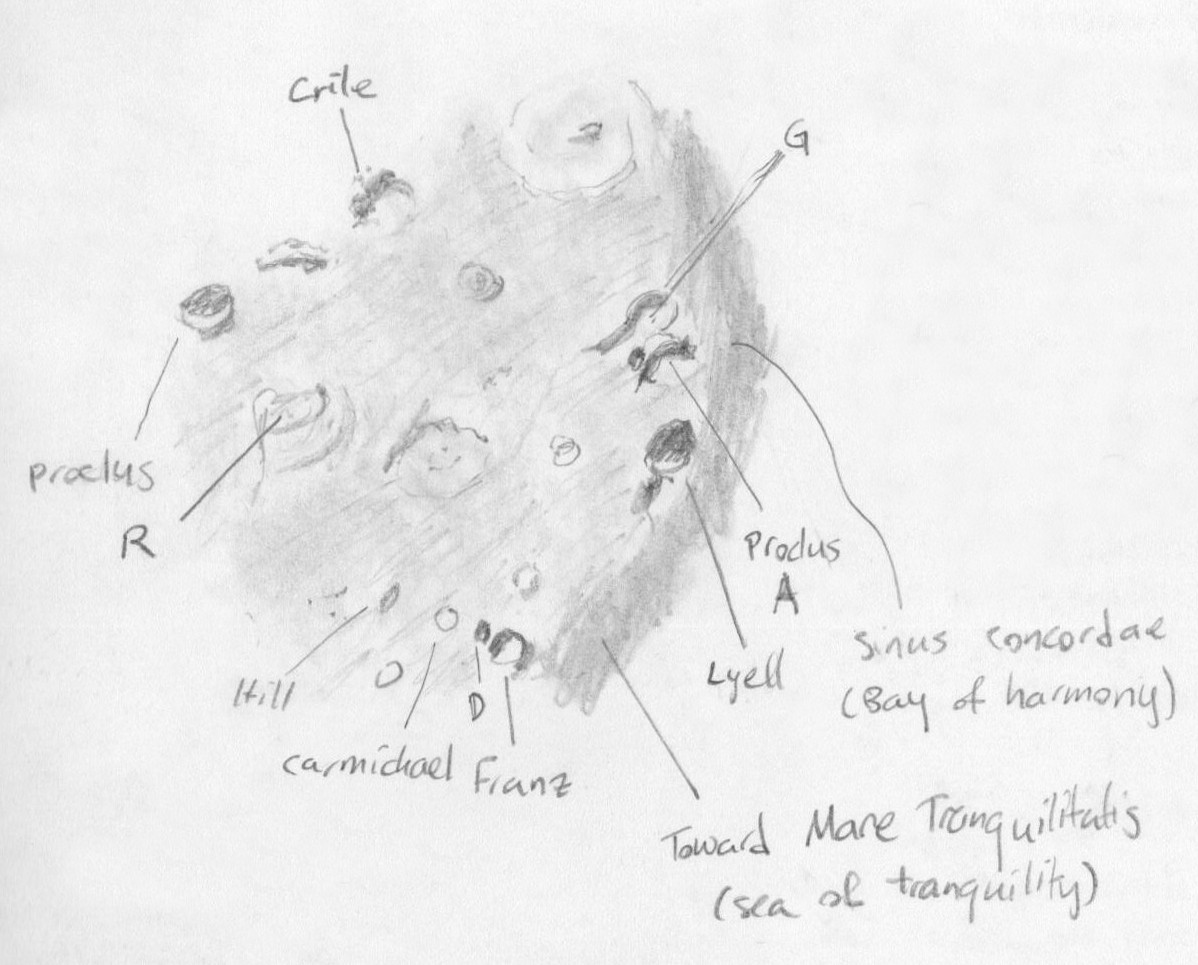 Crile
G
proclus
R
Produs
A
Hill
D
Lyell
Sinus concordae
(Bay of harmony)
carmichael
Franz
Toward Mare Tranquilitatis
(sea of tranquility)